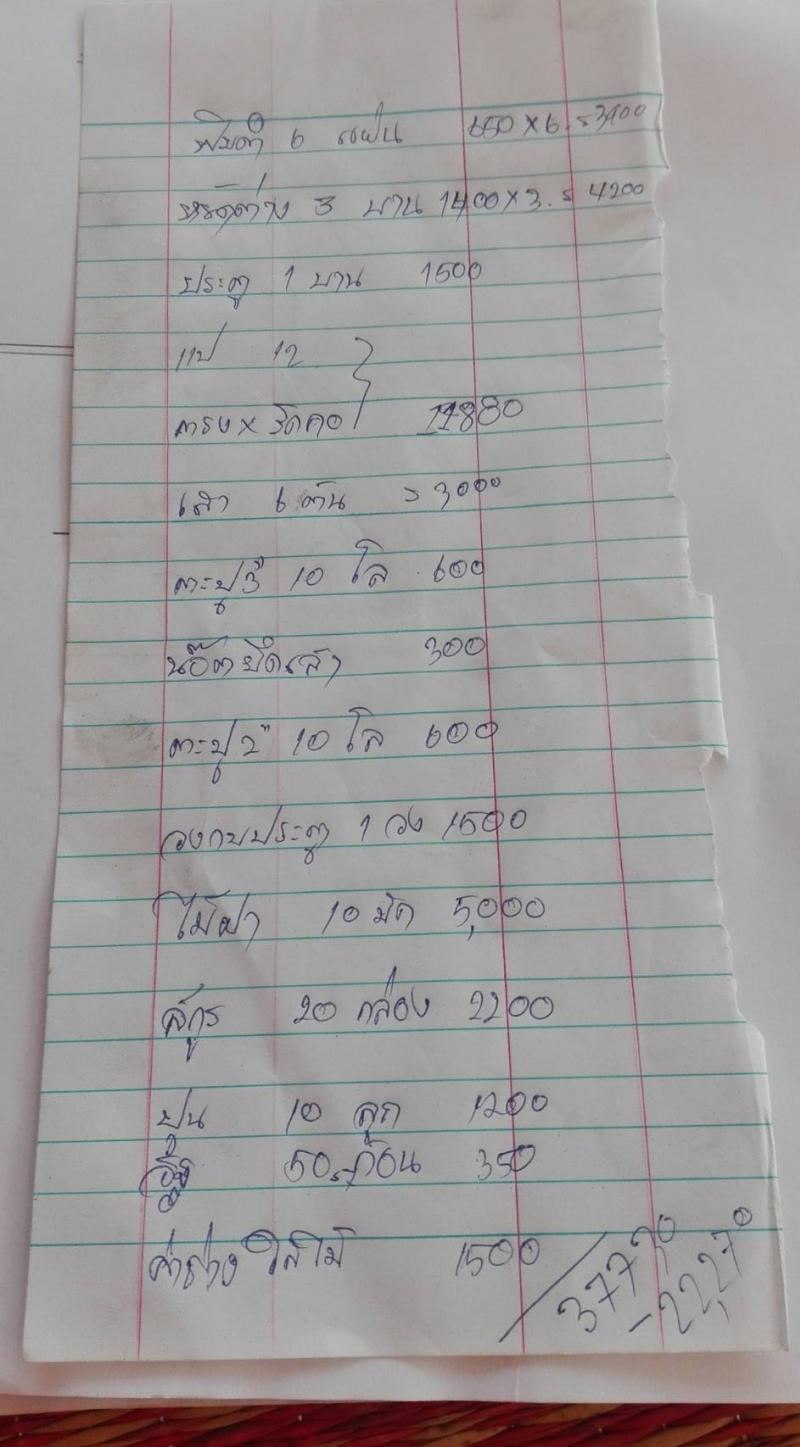 6 แผ่น 650 x 6. = 3,900
หน้าต่าง 3 บาน 1400 x 3. = 4200
ประตู 1 บาน 1500
แป 12
11880
เสา 6 ต้น = 3000
ตะปู 3" 10 โล 600
น๊อตยึดเสา 300
ตะปู 2" 10 โล 600
วงกบประตู 1 วง 1500
ไม้ฝา 10 มัด 5,000
สกูร 20 กล่อง 2200
ปูน 10 ลูก 1200
อิฐ 50 ก้อน 350
ค่าช่าง ใสไม้ 1500
37770
-22,270